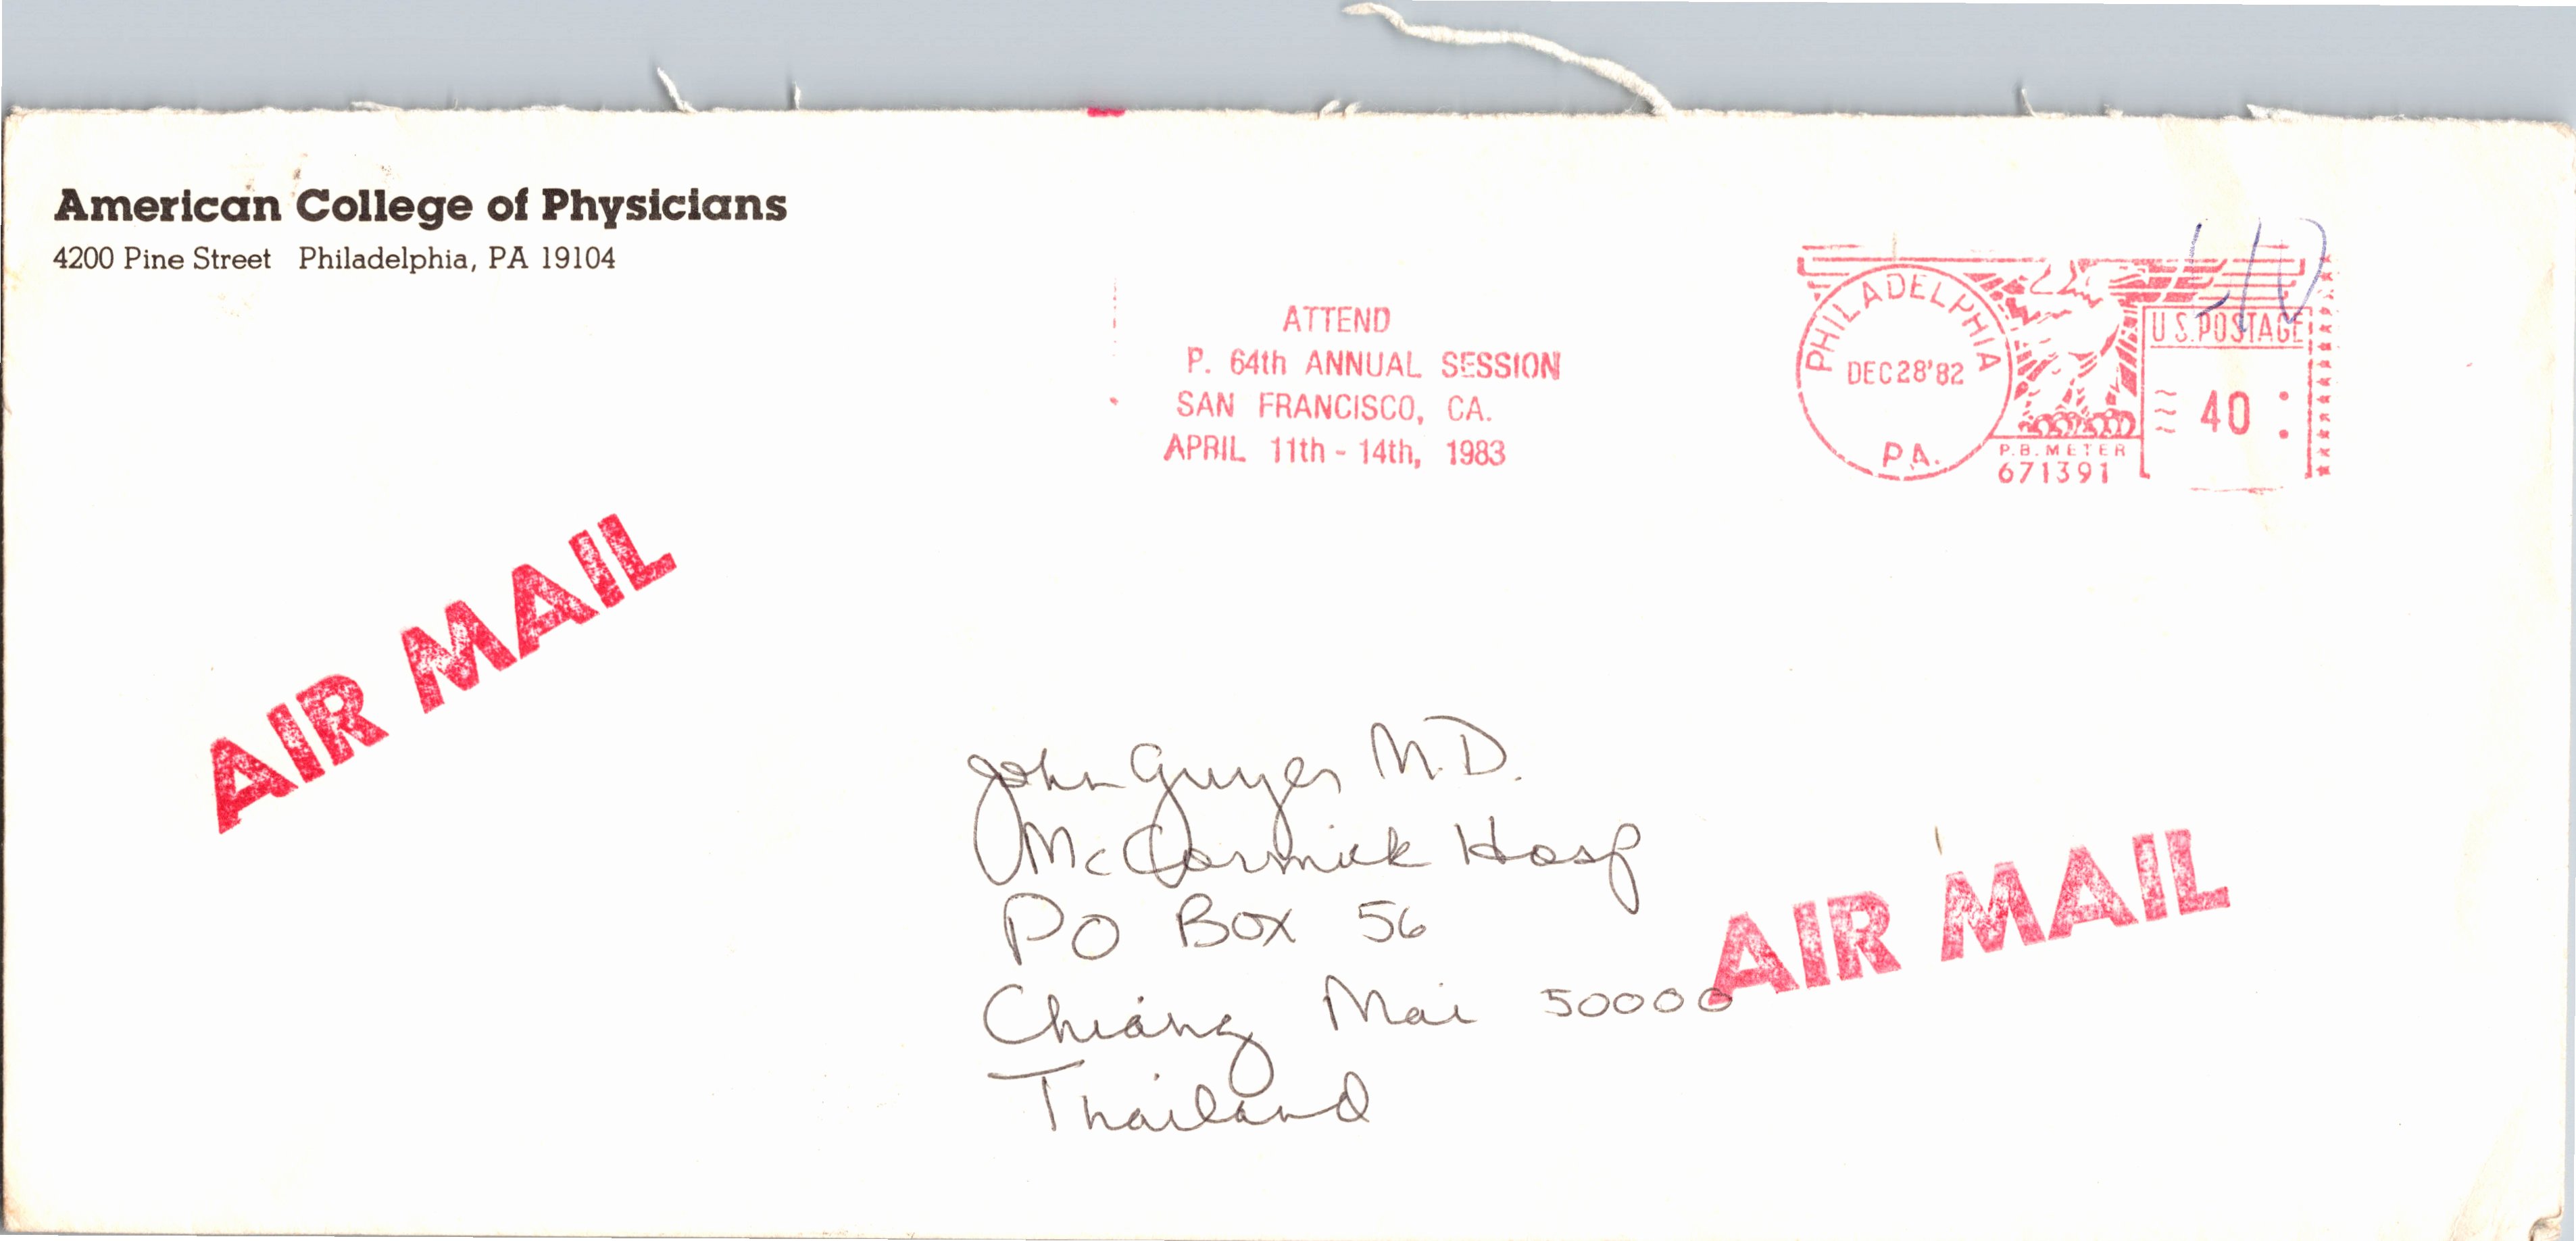 American College of Physicians
4200 Pine Street Philadelphia, PA 19104
ATTEND
P. 64th ANNUAL SESSION
SAN FRANCISCO, CA.
APRIL 11th - 14th, 1983
PHILADELPHIA
DEC 28 '82
PA.
P.B. METER
671391
U.S. POSTAGE
40
AIR MAIL
John Guyer M.D.
McCormick Hosp
PO Box 56
Chiang Mai 50000
Thailand
AIR MAIL